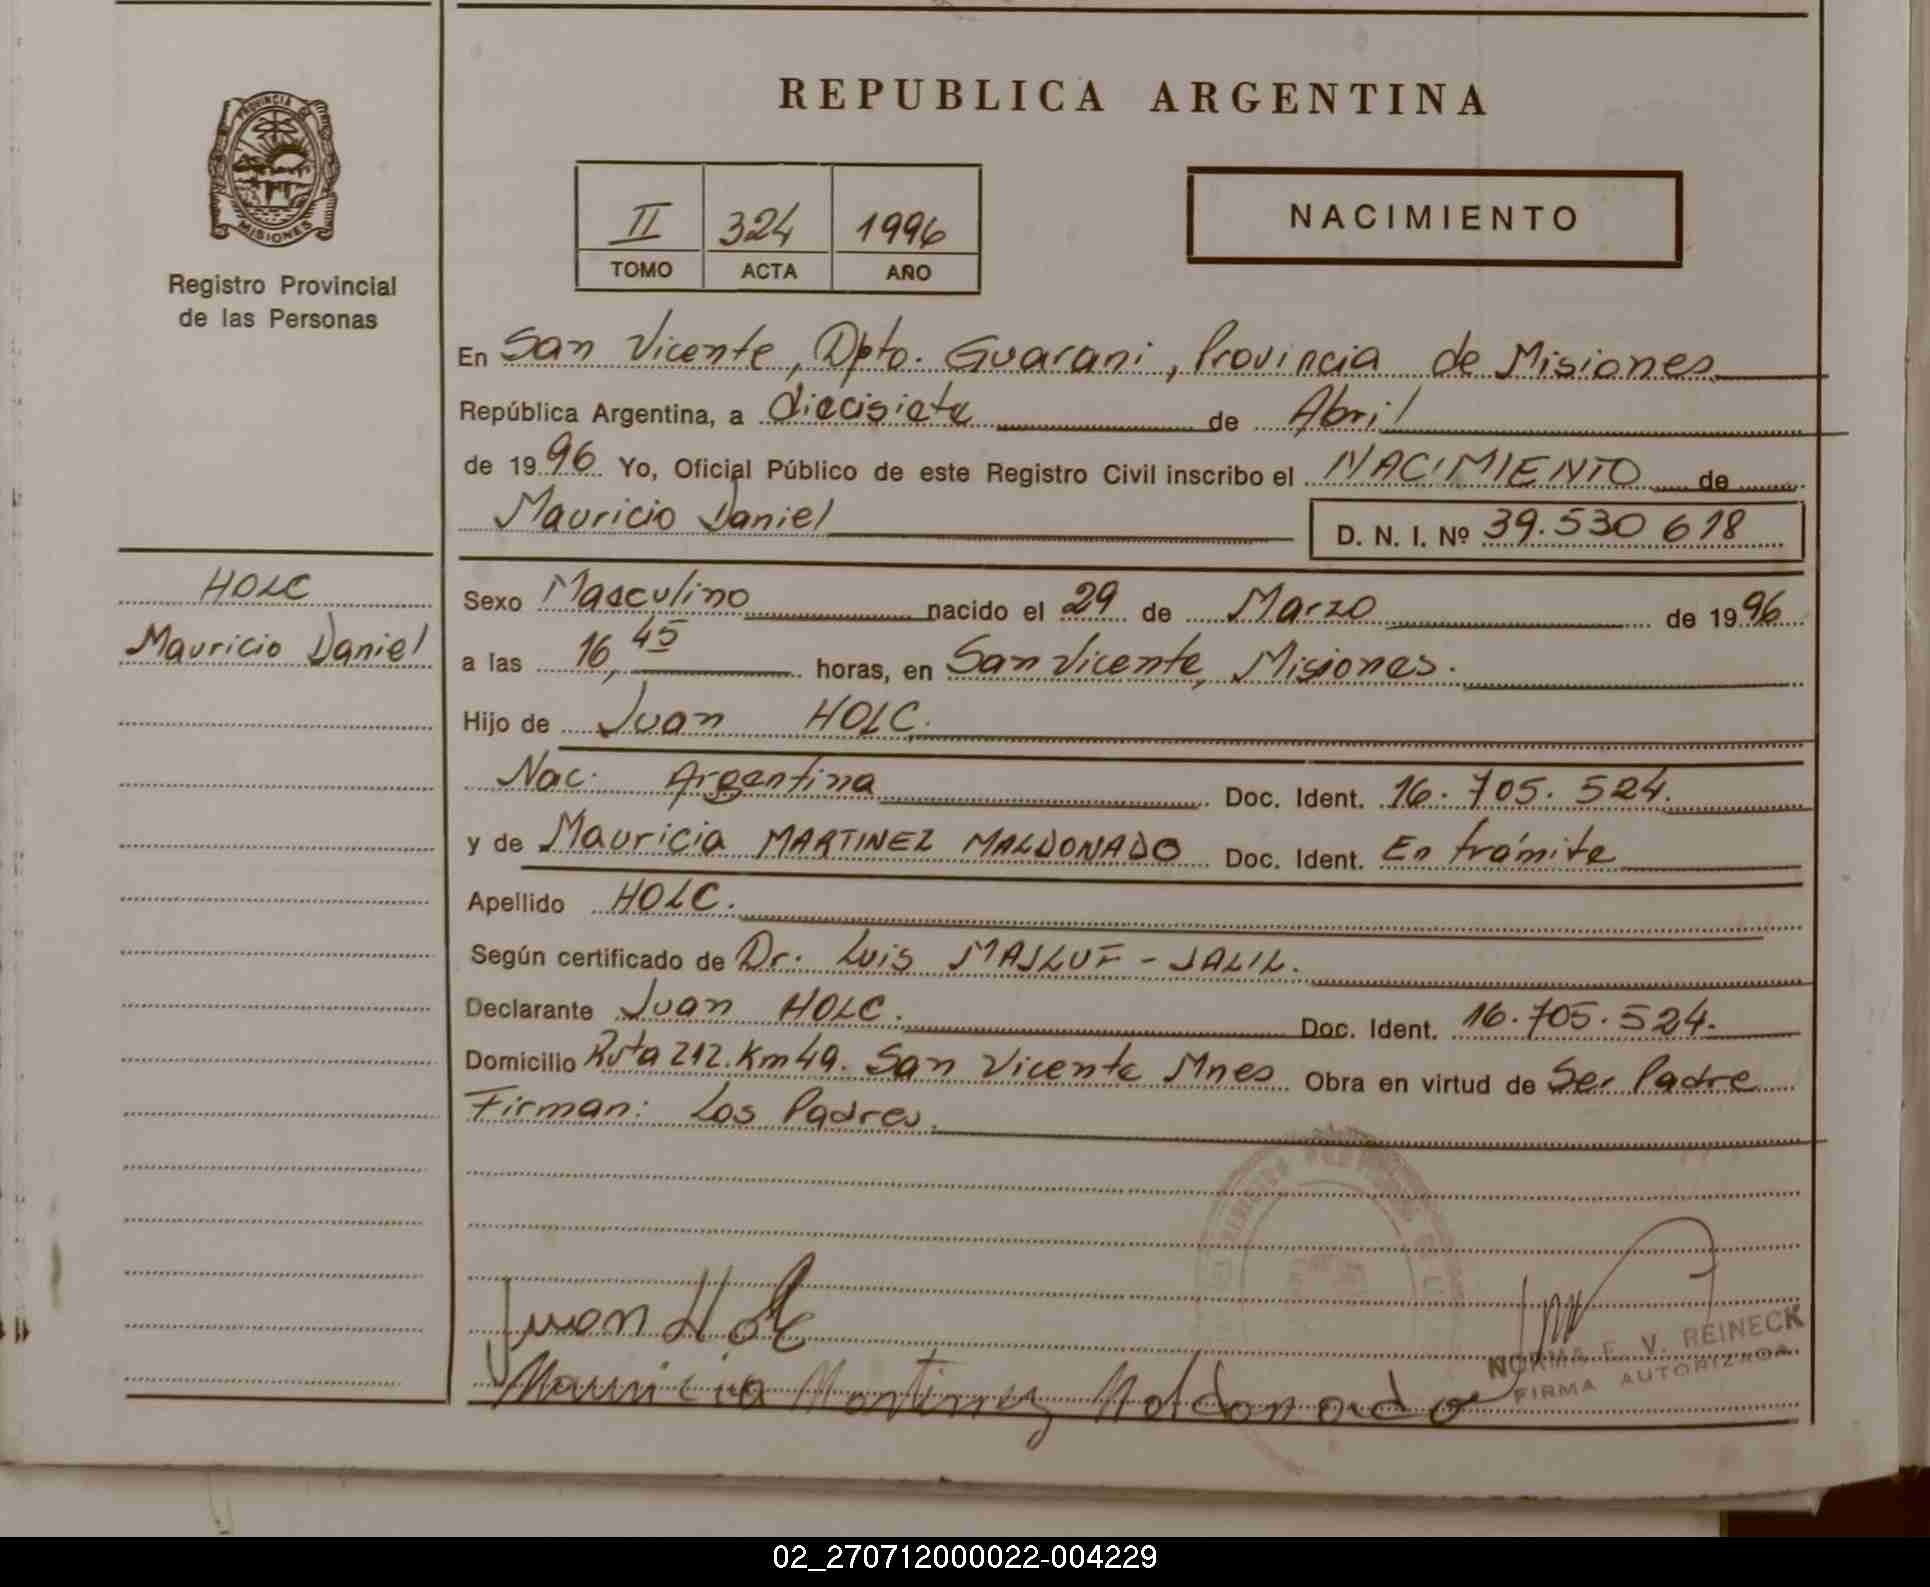 REPUBLICA ARGENTINA
PROVINCIA DE MISIONES
Registro Provincial
de las Personas
II 324 1996
TOMO ACTA AÑO
NACIMIENTO
En San Vicente, Dpto. Guarani, Provincia de Misiones
República Argentina, a diecisiete de Abril
de 1996 Yo, Oficial Público de este Registro Civil inscribo el NACIMIENTO de
Mauricio Daniel D. N. I. Nº 39.530 618
HOLC
Mauricio Daniel
Sexo Masculino nacido el 29 de Marzo de 1996
a las 16,45 horas, en San Vicente, Misiones.
Hijo de Juan HOLC.
Nac. Argentina Doc. Ident. 16.705.524.
y de Mauricia MARTINEZ MALDONADO Doc. Ident. En trámite
Apellido HOLC.
Según certificado de Dr. Luis MAJLUF - JALIL.
Declarante Juan HOLC. Doc. Ident. 16.705.524.
Domicilio Ruta 212. Km 49. San Vicente Mnes Obra en virtud de Ser Padre
Firman: Los Padres.
Juan Holc
Mauricia Martinez Maldonado
NORMA F. V. REINECK
FIRMA AUTORIZADA
02_270712000022-004229